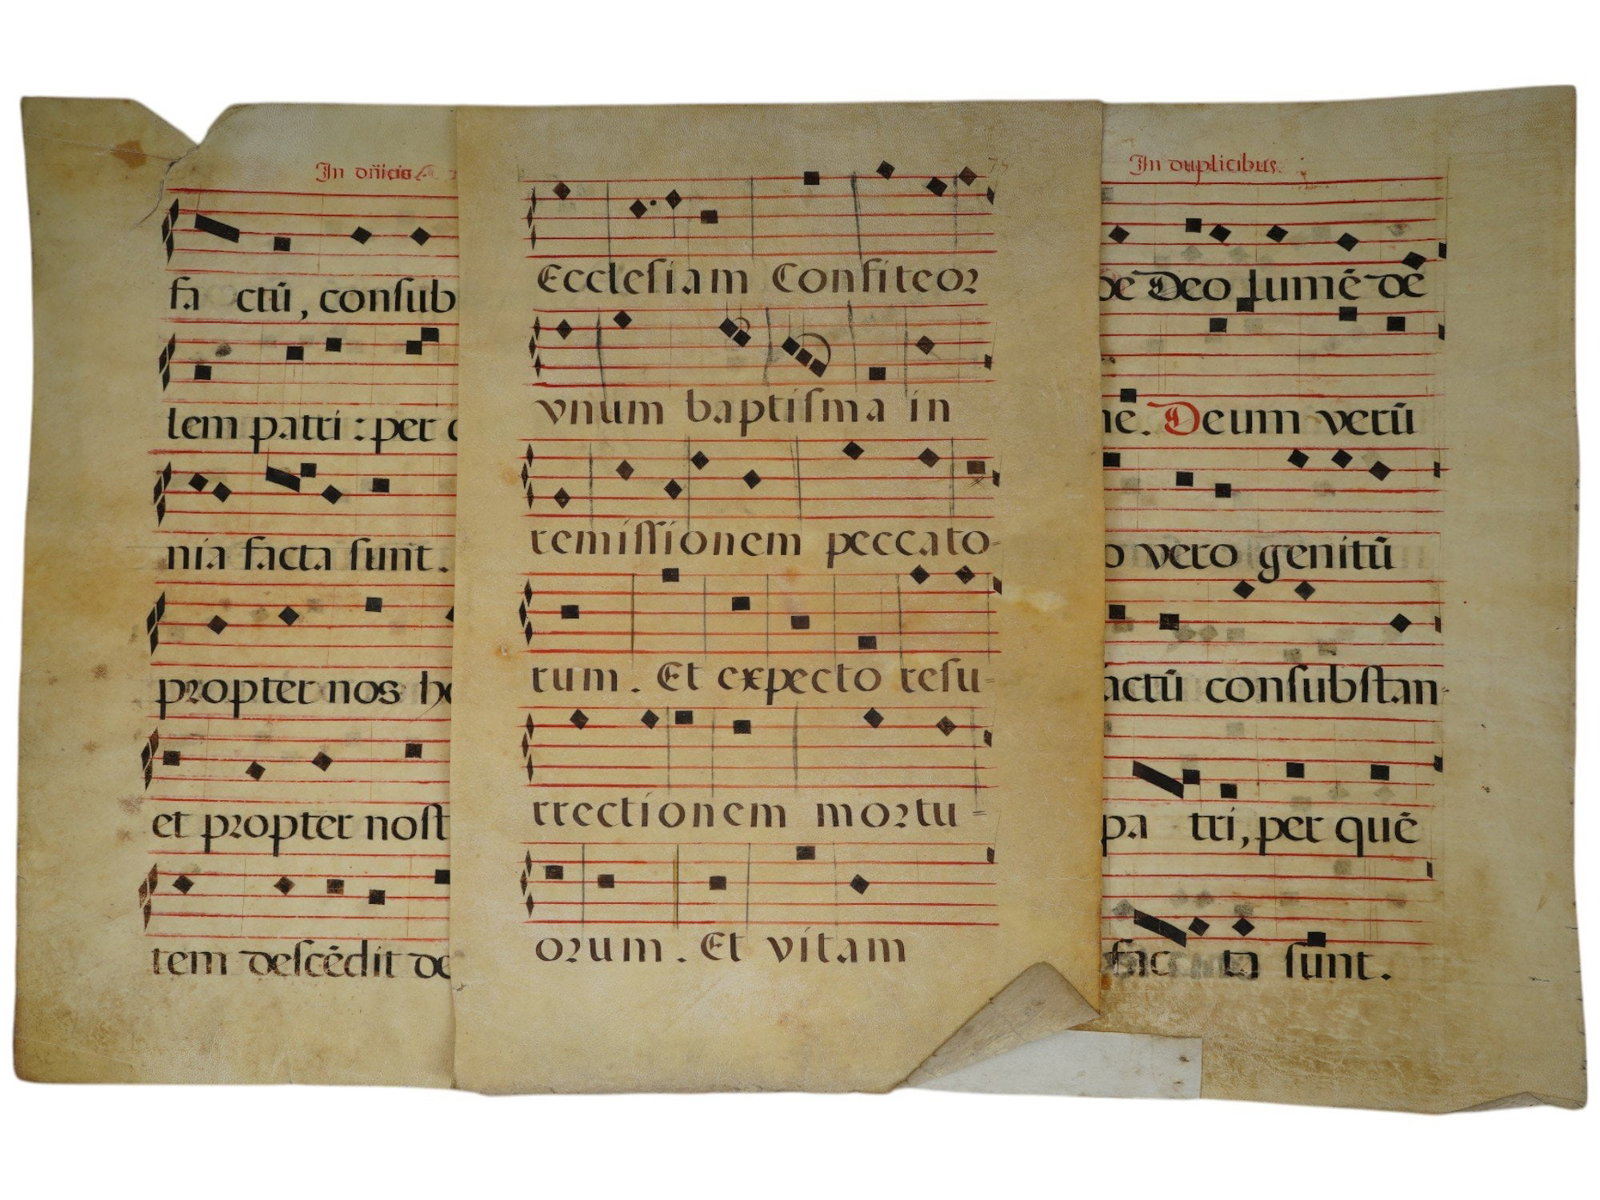 In
fa ctũ, consub
lem patri : per
nia facta sunt.
propter nos
et propter nost
tem descẽdit
Ecclesiam Confiteor
vnum baptisma in
remissionem peccato-
rum. Et expecto resu-
rrectionem mortu-
orum. Et vitam
In duplicibus.
Deo lumẽ de
Deum verũ
vero genitũ
actũ consubstan-
pa tri, per quẽ
fac ta sunt.